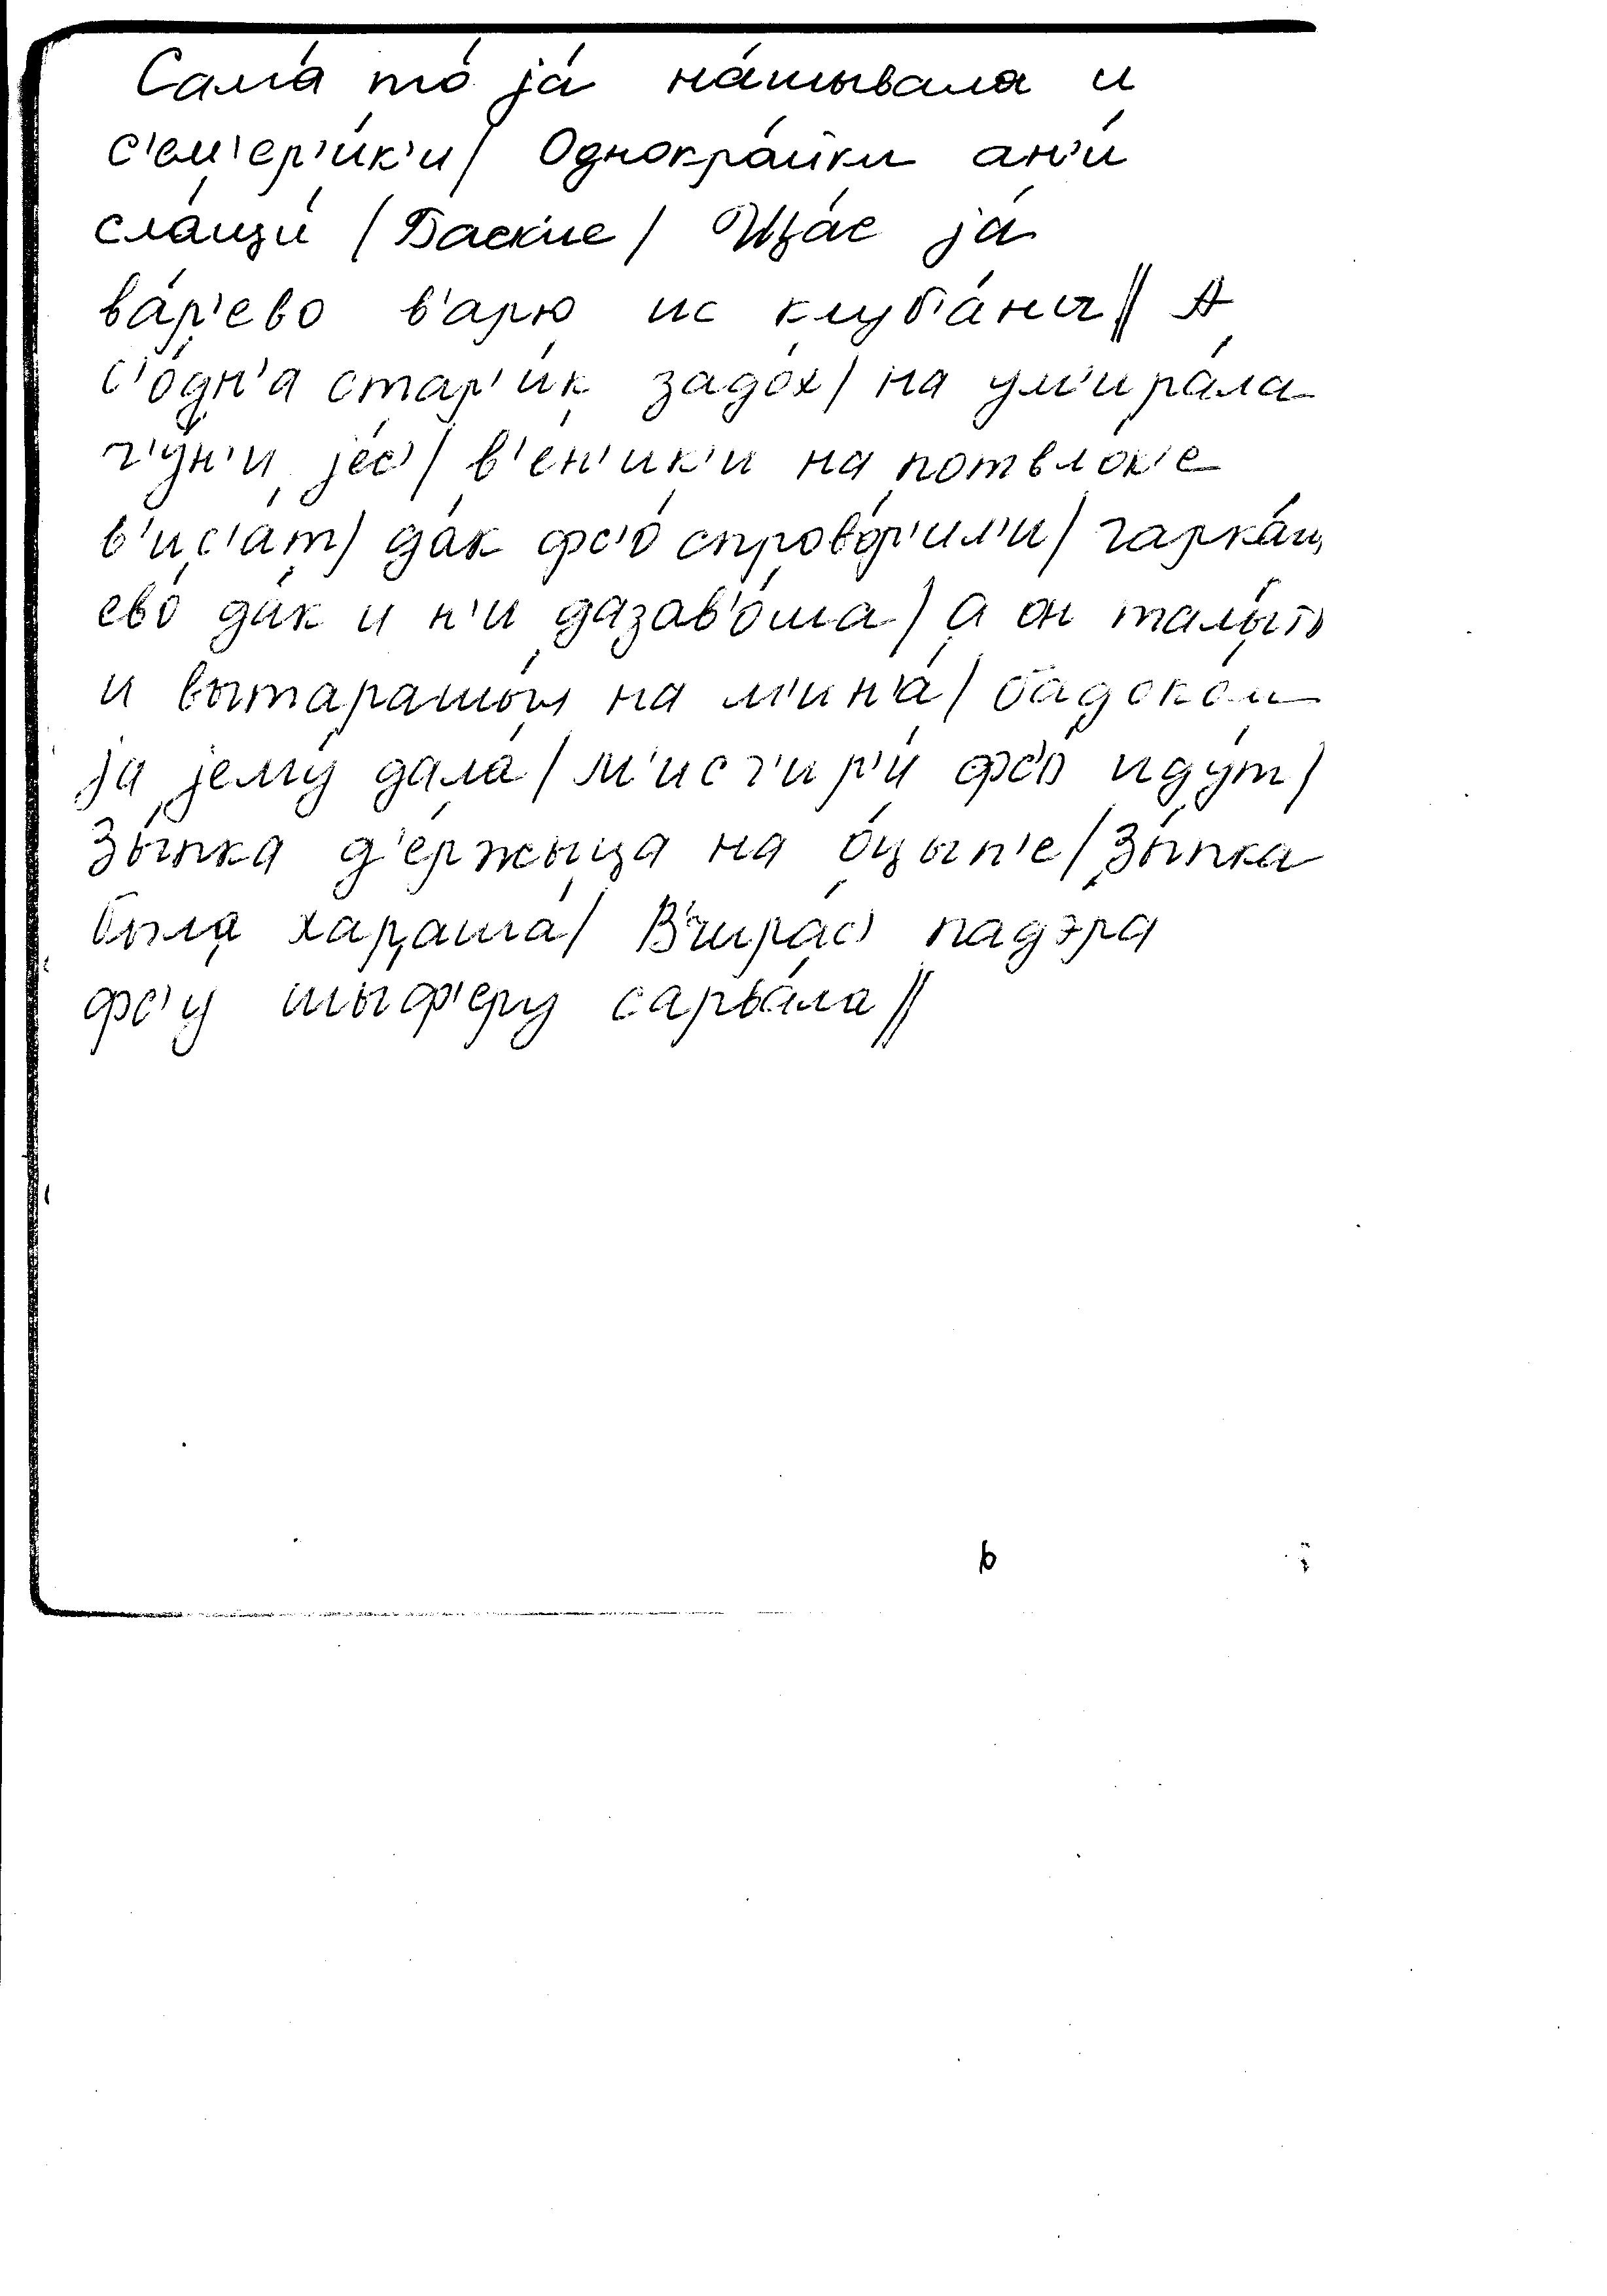 Сама́ то́ jа́ на́шывала и
с'ем'ер'и́к'и/ Однокра́йки ан'и́
сла́щи́ /Баские/ Ща́с jа́
ва́р'ево в'арю ис клуб'а́ны// А
с'о́дн'а стар'и́к задо́х/ на ум'ира́ла
г'у́н'и jе́с'/ в'е́н'ик'и на потвло́к'е
в'ис'а́т/ да́к фс'о́ спрово́р'ил'и/ гарка́ш
ево́ да́к и н'и дазав'о́ша/ а он талы́то
и вытарашыл на м'ин'а́/ бадоко́м
jа jему́ дала́/ м'исг'ир'и́ фс'о иду́т/
Зы́пка д'е́ржыца на о́цып'е/ Зы́пка
была хараша́/ Вчира́с' падэра
фс'у шыф'еру сарва́ла//
ь